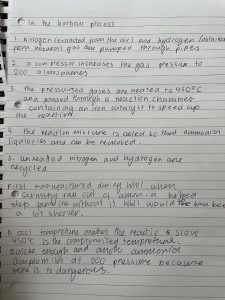 in the harbour process
1. nitrogen (extracted from the air) and hydrogen (obtained
from natural gas) are pumped through pipes
2. a compressor increases the gas pressure to
200 atmospheres
3. the pressurised gases are heated to 450°C
and passed through a reaction chamber
containing an iron catalyst to speed up
the reaction
4. the reaction mixture is cooled so that ammonia
liquefies and can be removed.
5. unreacted nitrogen and hydrogen are
recycled
First manufactured during WWI when
Germany ran out of ammo. helped
stop famine without it WWI would have been
a lot shorter.
A cool temperature makes the reaction slow
450°C is the compromised temperature.
quick enough and ammonia
compromise at 200 pressure because
more is to dangerous.